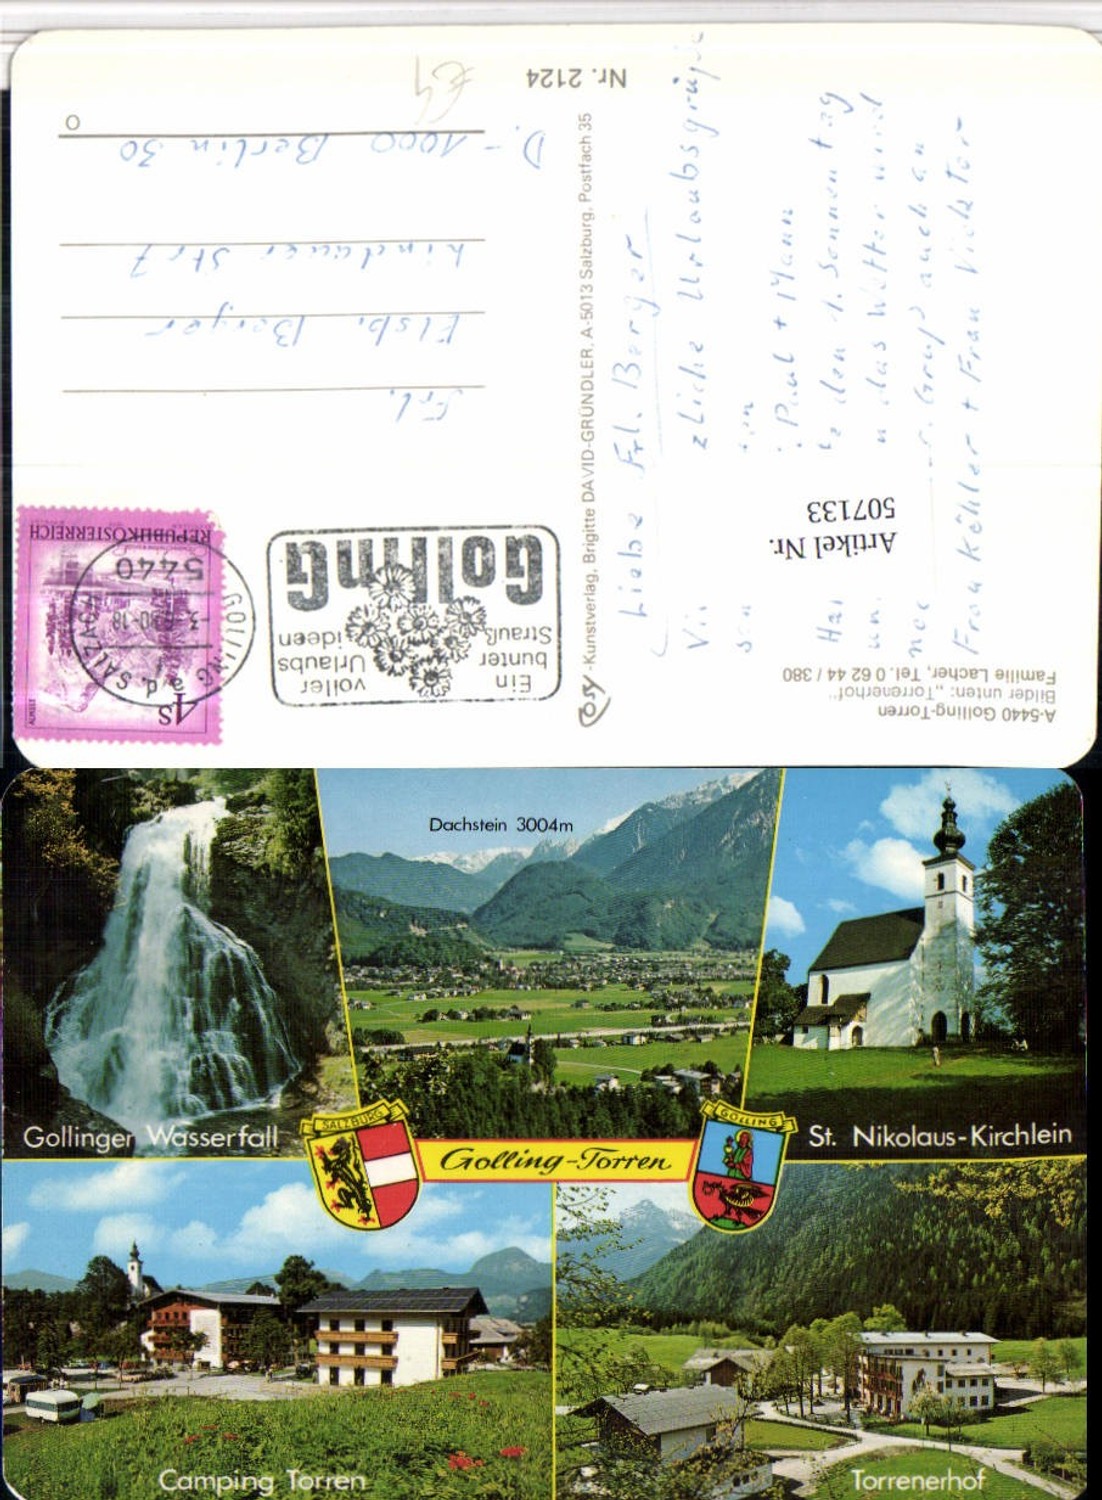 A-5440 Golling-Torren
Bilder unten: „Torrenerhof"
Familie Lacher, Tel. 0 62 44 / 380
Artikel Nr.
507133
Liebe Frl. Berger
zliche Urlaubsgrüße
Paul + Mann
den 1. Sonnentag
das Wetter wird
Gruß auch an
Frau Köhler + Frau Viektor
Cosy-Kunstverlag, Brigitte DAVID-GRÜNDLER, A-5013 Salzburg, Postfach 35
Nr. 2124
Ein
bunter
Strauß
voller
Urlaubs
ideen
Golling
REPUBLIK ÖSTERREICH
4S
ALMSEE
5440
GOLLING a.d. SALZACH
Frl.
Elsb. Berger
Lindauer Str 7
D.-1000 Berlin 30
Dachstein 3004m
Gollinger Wasserfall
St. Nikolaus-Kirchlein
SALZBURG
GOLLING
Golling-Torren
Camping Torren
Torrenerhof